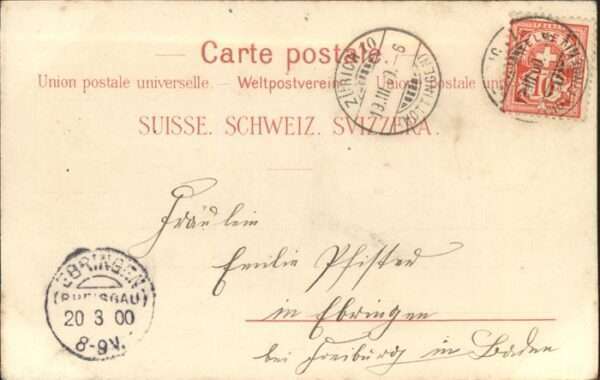 Carte postale.
Union postale universelle. – Weltpostverein. – Unione postale
SUISSE. SCHWEIZ. SVIZZERA.
ZÜRICH 10
19.III.00. – 6
(OBERSTR.)
10
Fräulein
Emilie Pfister
in Ebringen
bei Freiburg in Baden
EBRINGEN
(BREISGAU)
20 3 00
8-9V.